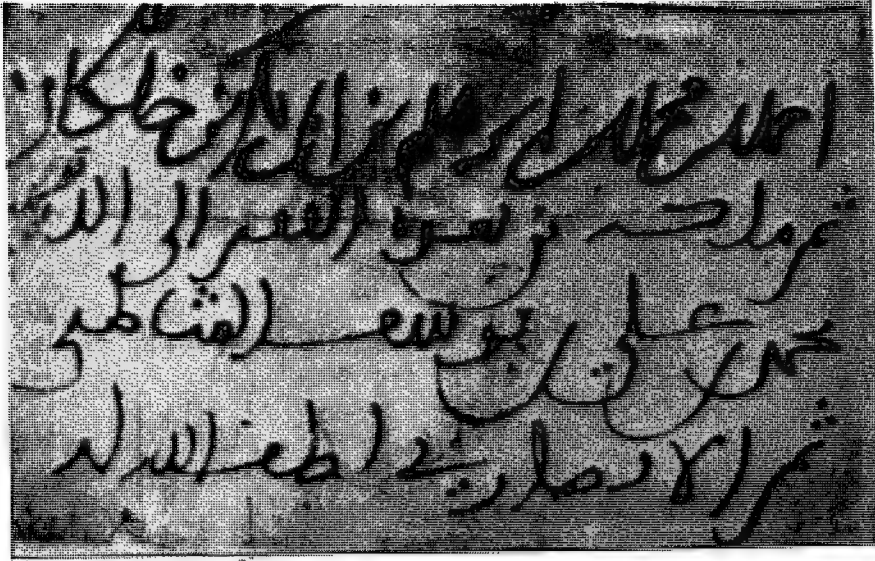 احمد بن محمد بن ابرهيم بن ابي بكر بن خلكان
ثم ملكه من بعده الفقير الى الله
محمد بن علي بن يوسف الشاطبي
ثم الانصاري لطف الله له